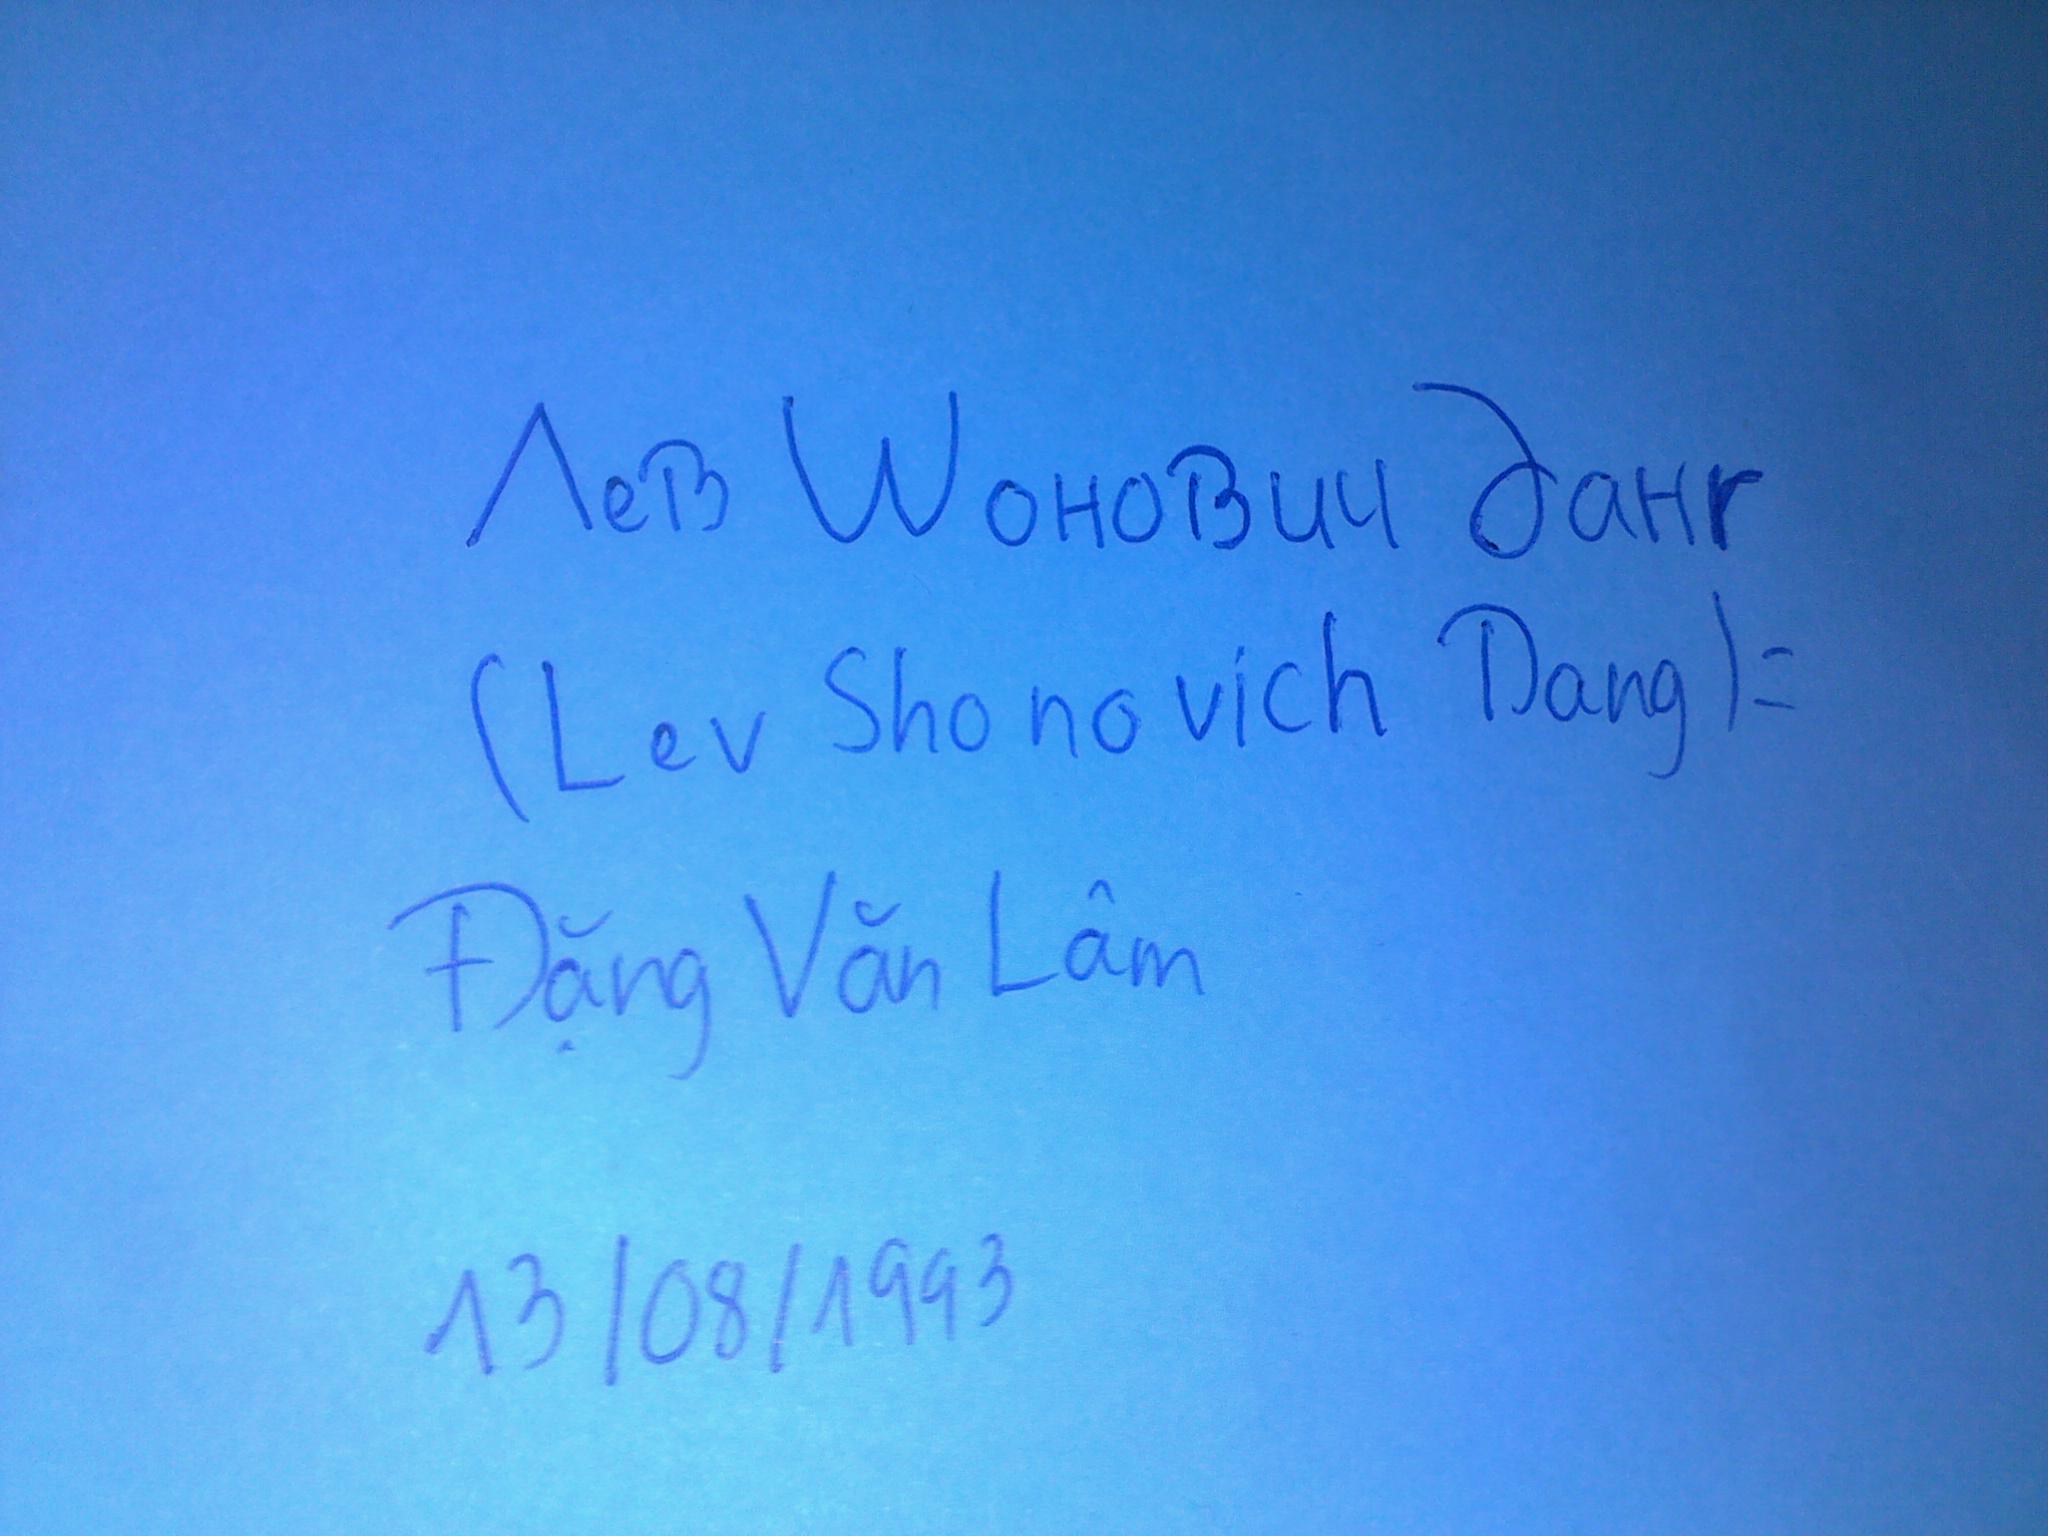 Лев Шонович Данг
(Lev Shonovich Dang) =
Đặng Văn Lâm
13/08/1993